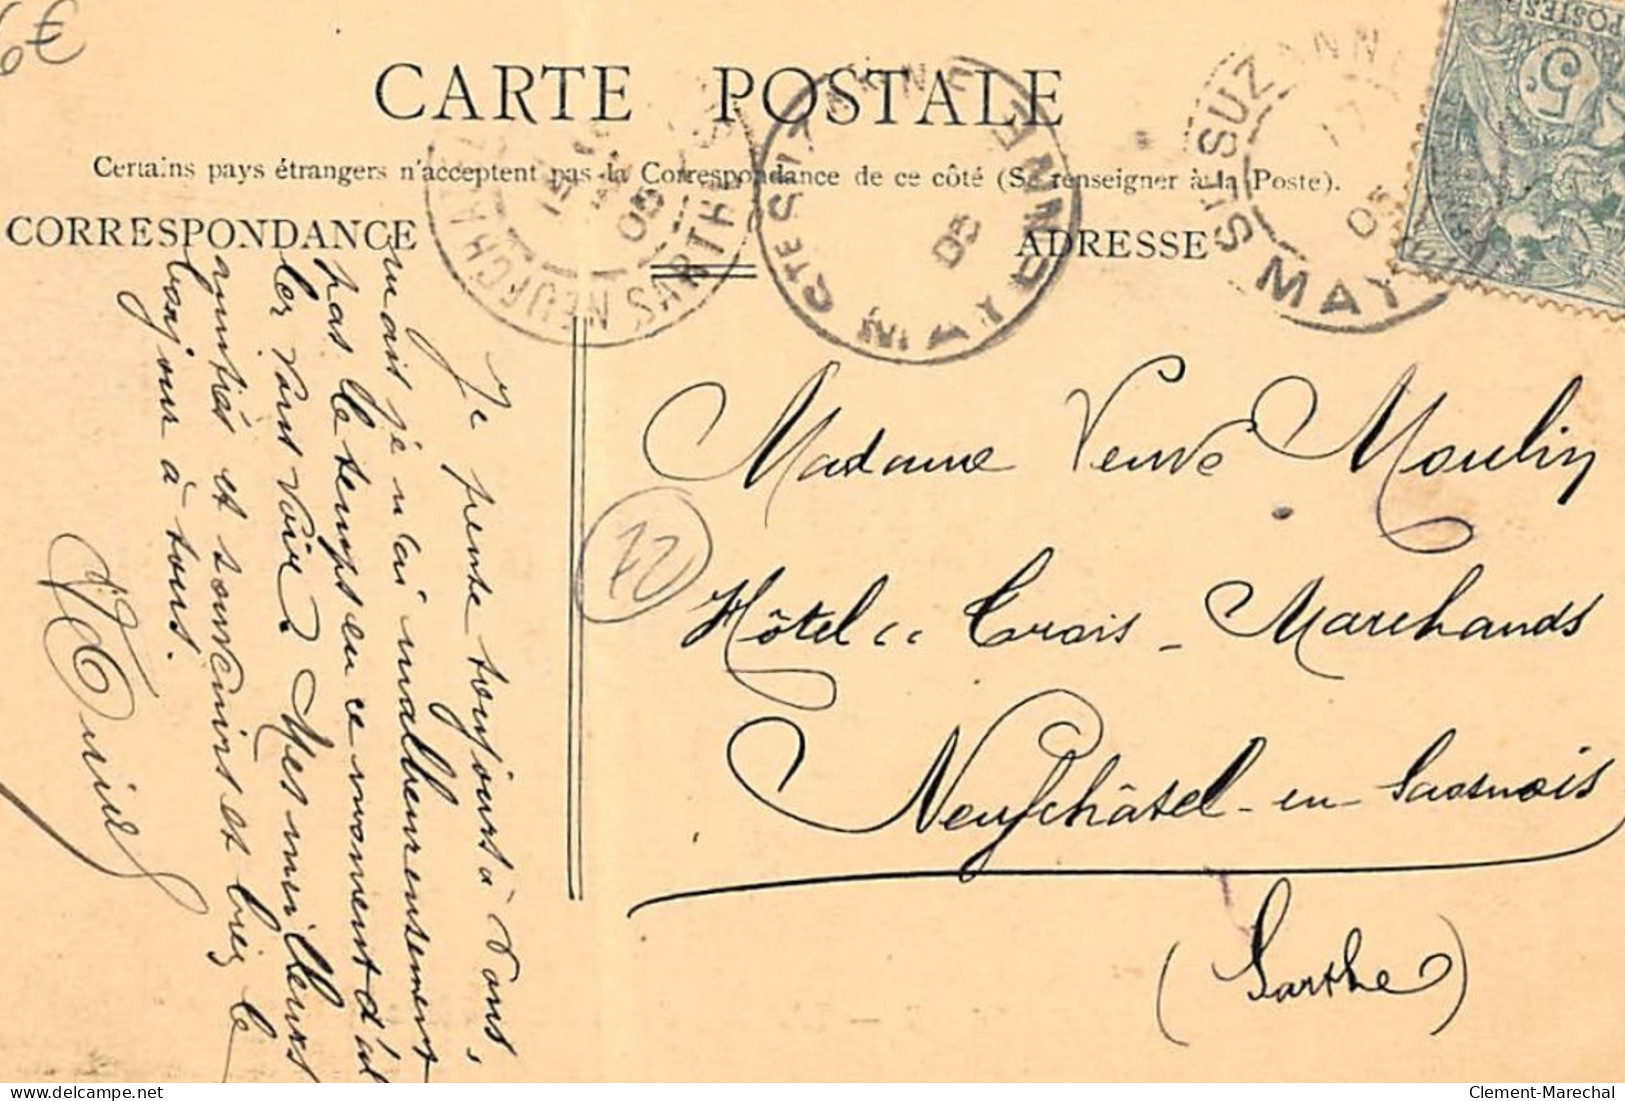 6€
CARTE POSTALE
Certains pays étrangers n'acceptent pas la Correspondance de ce côté (Se renseigner à la Poste).
CORRESPONDANCE
ADRESSE
STE SUZANNE
MAYENNE
05
NEUFCH
SARTHE
05
STE SUZANNE
MAY
05
POSTES
5
Je pense toujours à vous,
mais je n'ai malheureusement
pas le temps en ce moment d'al
ler vous voir. Mes meilleurs
amitiés et souvenirs et bien le
bonjour à tous.
Madame Veuve Moulin
Hôtel des Trois-Marchands
Neufchâtel-en-Saosnois
(Sarthe)
72
delcampe.net
Clement-Marechal